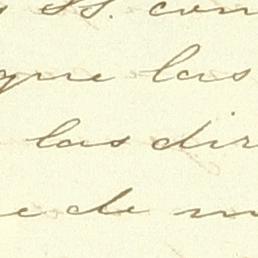 SS. con
que las
las dir
e de m